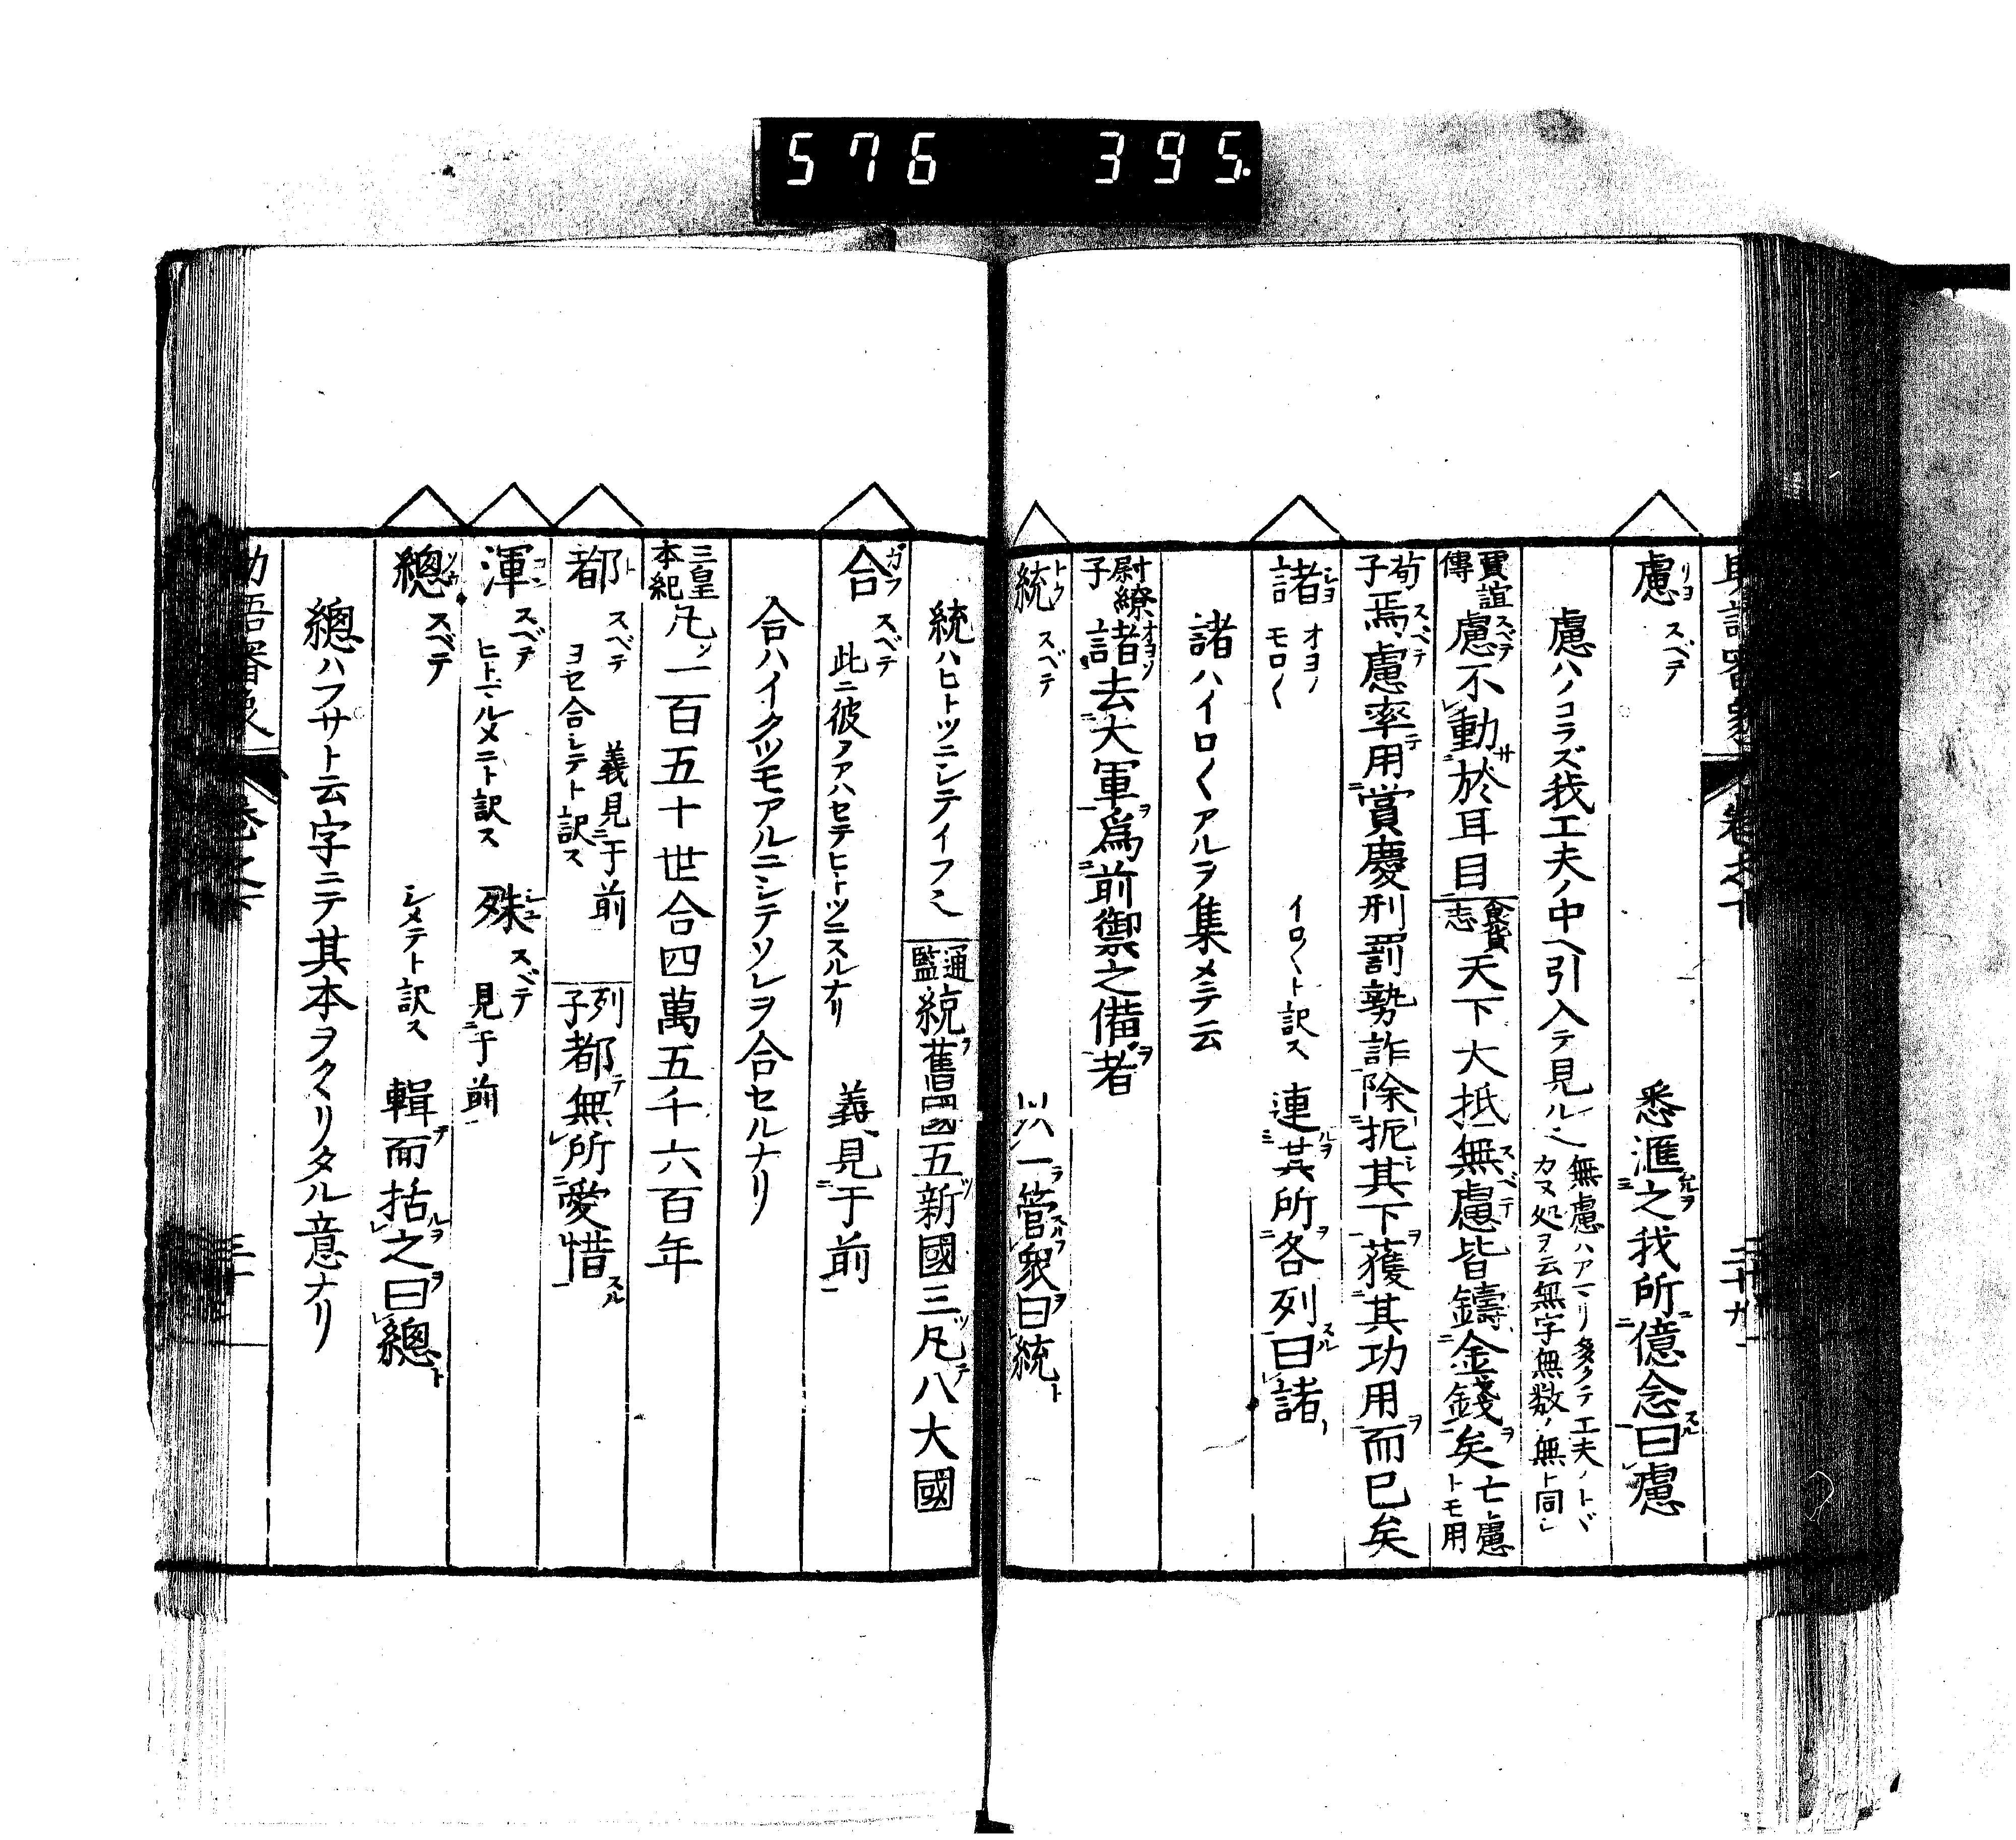 576 395.
慮 リヨ スベテ 悉滙之我所億念曰慮
慮ハノコラズ我工夫ノ中ヘ引入テ見ル也 無慮ハアマリ多クテ工夫ノトヾ
カヌ処ヲ云無字無数ノ無ト同シ
賈誼傳 慮不動於耳目 食貨志 天下大抵無慮皆鑄金錢矣 亡慮トモ用
荀子 焉慮率用賞慶刑罰勢詐除扼其下獲其功用而已矣
諸 シヨ オヨソ モロ〱 イロ〱ト訳ス 連其所各列曰諸
諸ハイロ〱アルヲ集メテ云
尉繚子 諸去大軍為前御之備者
統 トウ スベテ 以一管衆曰統
統ハヒトツニシテイフ也 通監 統舊國五新國三凡八大國
合 ガフ スベテ 此ニ彼ヲアハセテヒトツニスルナリ 義見于前
合ハイクツモアルニシテソレヲ合セルナリ
三皇本紀 凡一百五十世合四萬五千六百年
都 ト スベテ ヨセ合シテト訳ス 義見于前 列子 都無所愛惜
渾 コン スベテ ヒトマルメニト訳ス 殊 シユ スベテ 見于前
總 ソウ スベテ シメテト訳ス 輯而括之曰總
總ハフサト云字ニテ其本ヲクヽリタル意ナリ